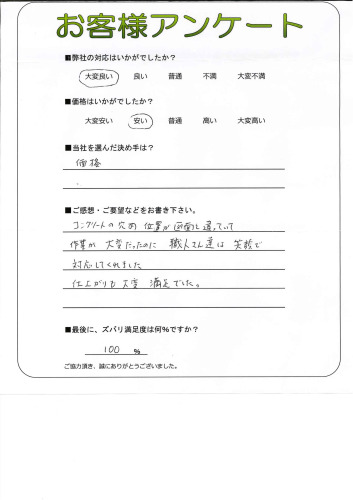 お客様アンケート
■弊社の対応はいかがでしたか？
大変良い 良い 普通 不満 大変不満
■価格はいかがでしたか？
大変安い 安い 普通 高い 大変高い
■当社を選んだ決め手は？
価格
■ご感想・ご要望などをお書き下さい。
コンクリートの穴の位置が図面と違っていて
作業が大変だったのに 職人さん達は 笑顔で
対応してくれました
仕上がりも大変 満足でした。
■最後に、ズバリ満足度は何%ですか？
100 %
ご協力頂き、誠にありがとうございました。